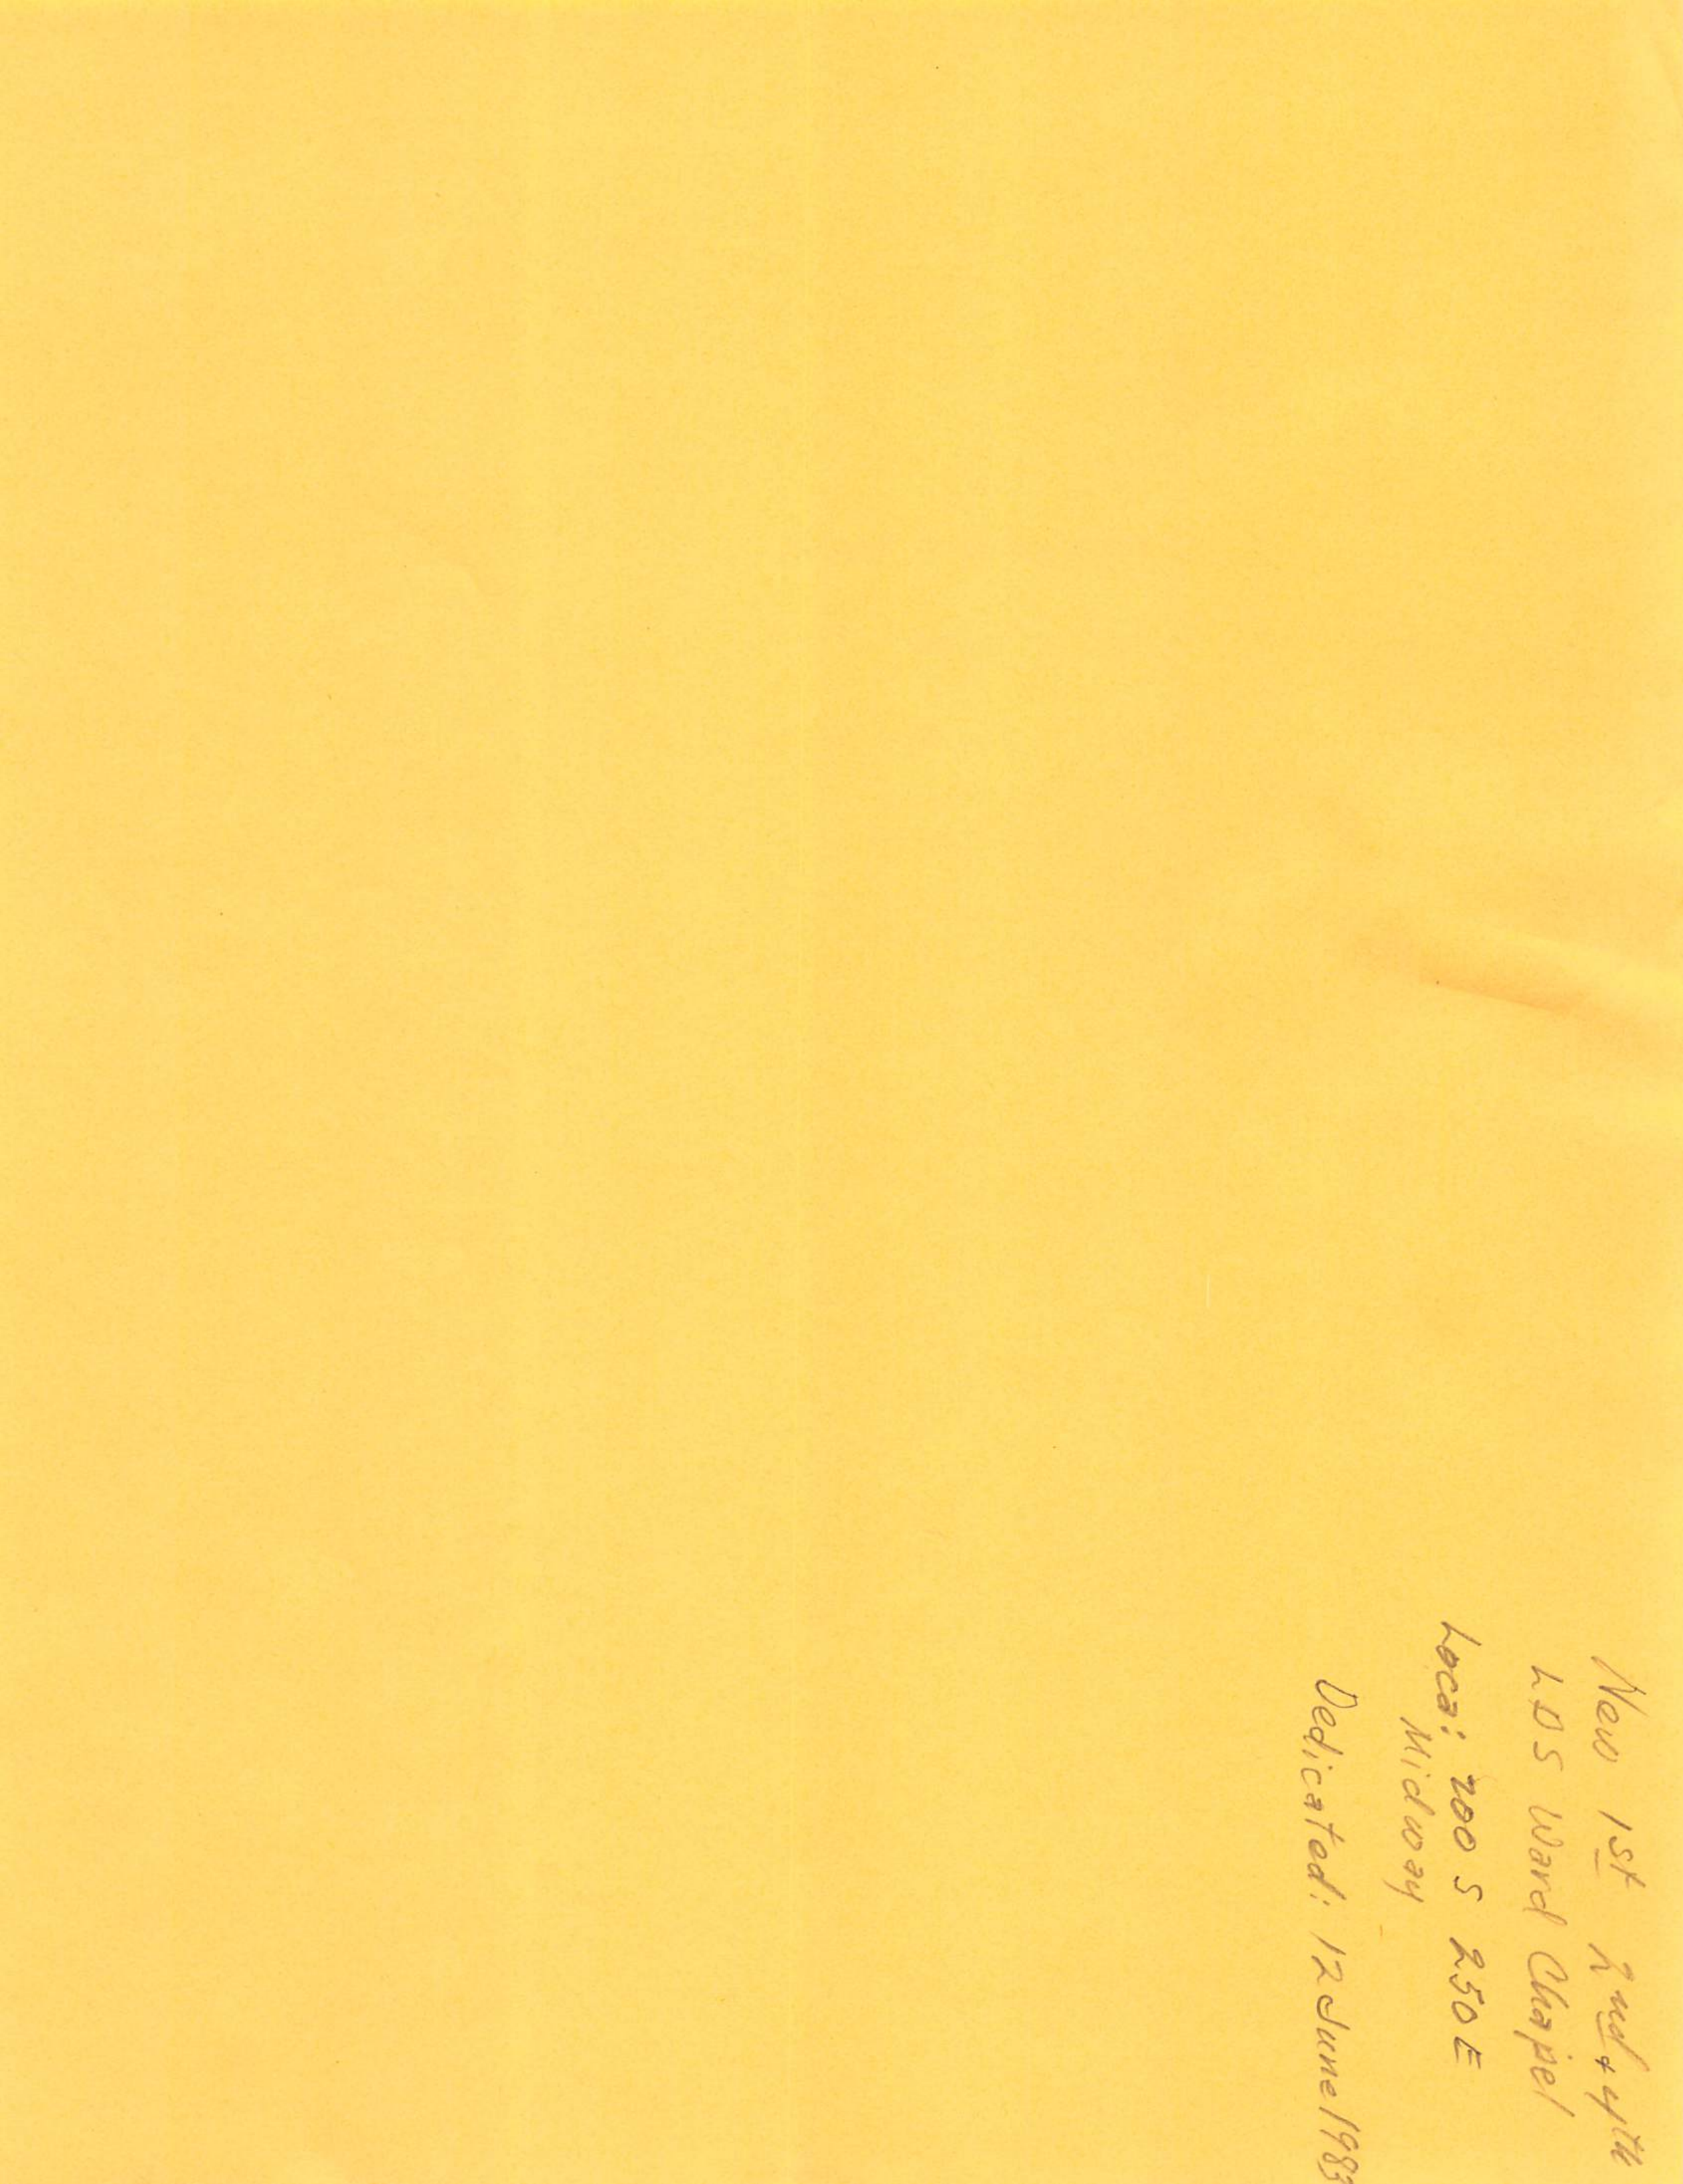 New 1st 2nd & 4th
LDS Ward Chapel
Loca: 200 S 250 E
Midway
Dedicated: 12 June 1983